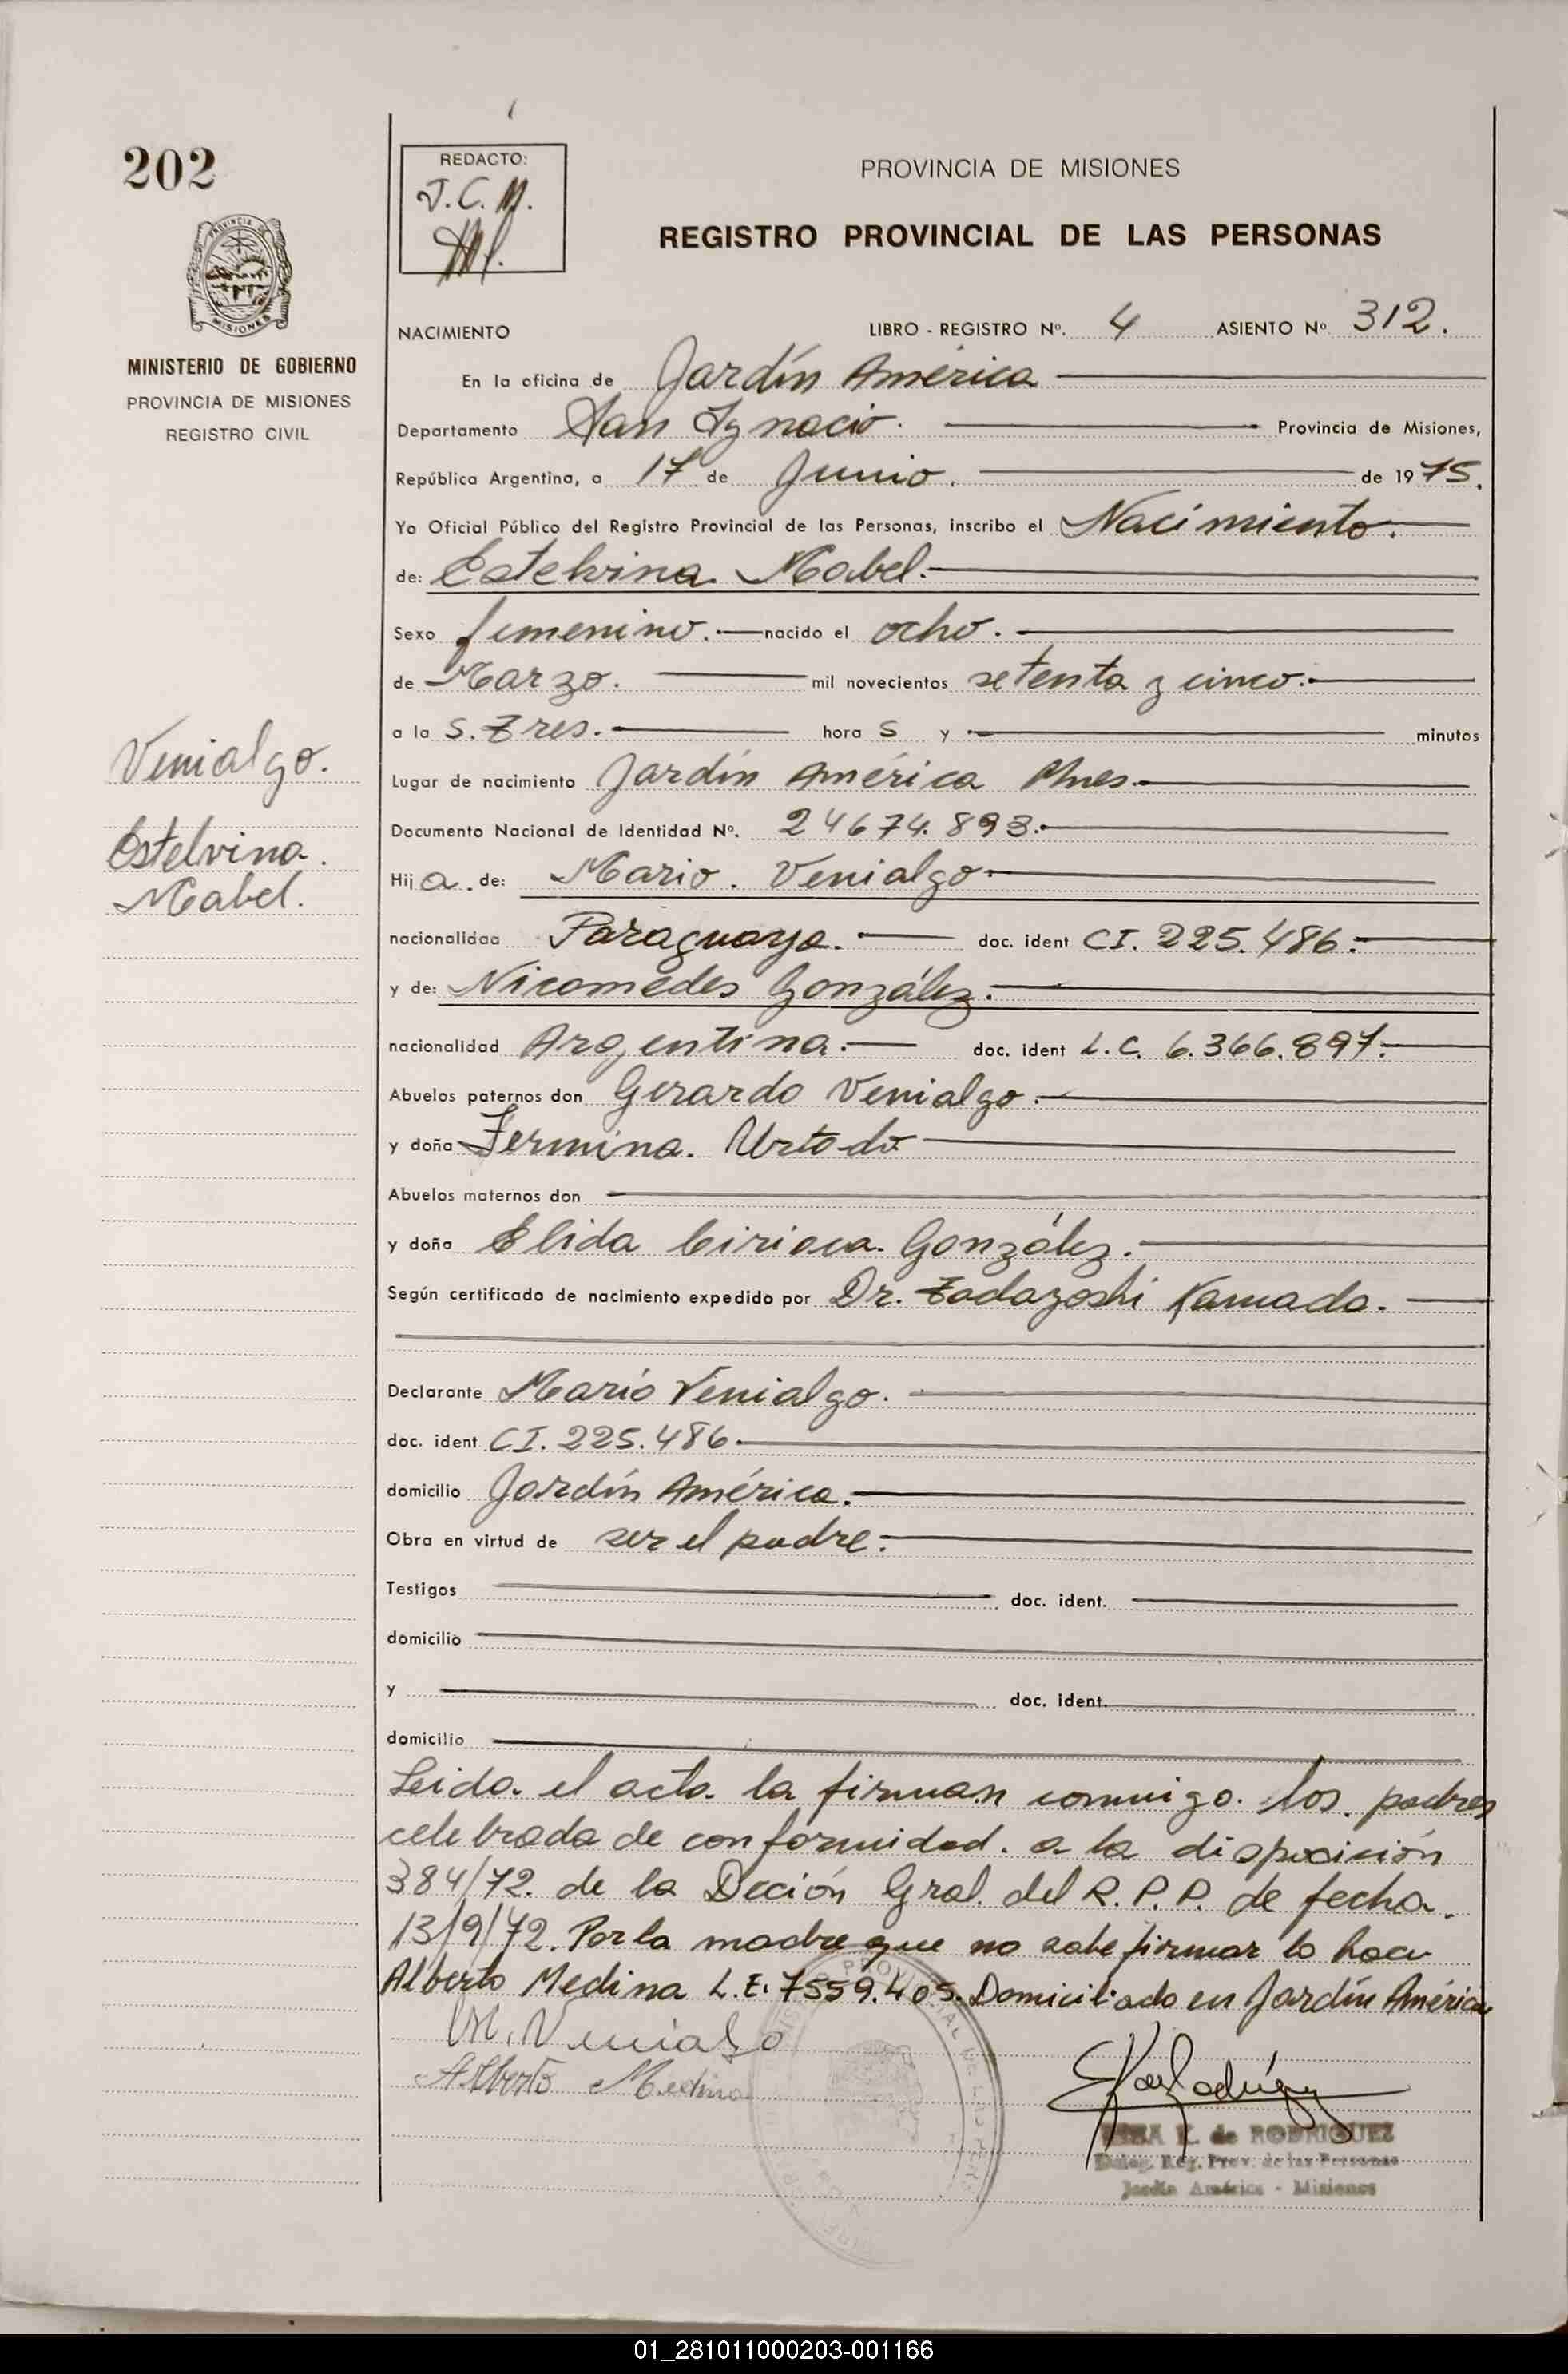 202
REDACTO:
J.C.M.
PROVINCIA DE MISIONES
REGISTRO PROVINCIAL DE LAS PERSONAS
PROVINCIA DE
MISIONES
MINISTERIO DE GOBIERNO
PROVINCIA DE MISIONES
REGISTRO CIVIL
NACIMIENTO LIBRO - REGISTRO Nº. 4 ASIENTO Nº 312.
En la oficina de Jardín América
Departamento San Ignacio. Provincia de Misiones,
República Argentina, a 17 de Junio. de 1975.
Yo Oficial Público del Registro Provincial de las Personas, inscribo el Nacimiento.
de: Estelvina Mabel.
Sexo femenino. nacido el ocho.
de Marzo. mil novecientos setenta y cinco.
a la s. Tres. hora s y minutos
Venialgo.
Lugar de nacimiento Jardín América Mnes.
Documento Nacional de Identidad Nº. 24674.893.
Estelvina.
Mabel.
Hij a. de: Mario. Venialgo
nacionalidad Paraguaya. doc. ident CI. 225.486.
y de: Nicomedes González.
nacionalidad Argentina. doc. ident L.C. 6.366.897.
Abuelos paternos don Gerardo Venialgo.
y doña Fermina. Urtado
Abuelos maternos don
y doña Elida Ciriaca González.
Según certificado de nacimiento expedido por Dr. Tadazoshi Kamada.
Declarante Mario Venialgo.
doc. ident CI. 225.486
domicilio Jardín América.
Obra en virtud de ser el padre.
Testigos doc. ident.
domicilio
y doc. ident.
domicilio
Leida el acta la firman conmigo. los. padres
celebrada de conformidad. a la disposición
384/72. de la Dección Gral. del R.P.P. de fecha.
13/9/72. Por la madre que no sabe firmar lo hace
Alberto Medina L.E. 7559.405. Domiciliado en Jardín América
M. Venialgo
Alberto Medina
K. de RODRIGUEZ
Reg. Prov. de las Personas
Jardín América - Misiones
01_281011000203-001166